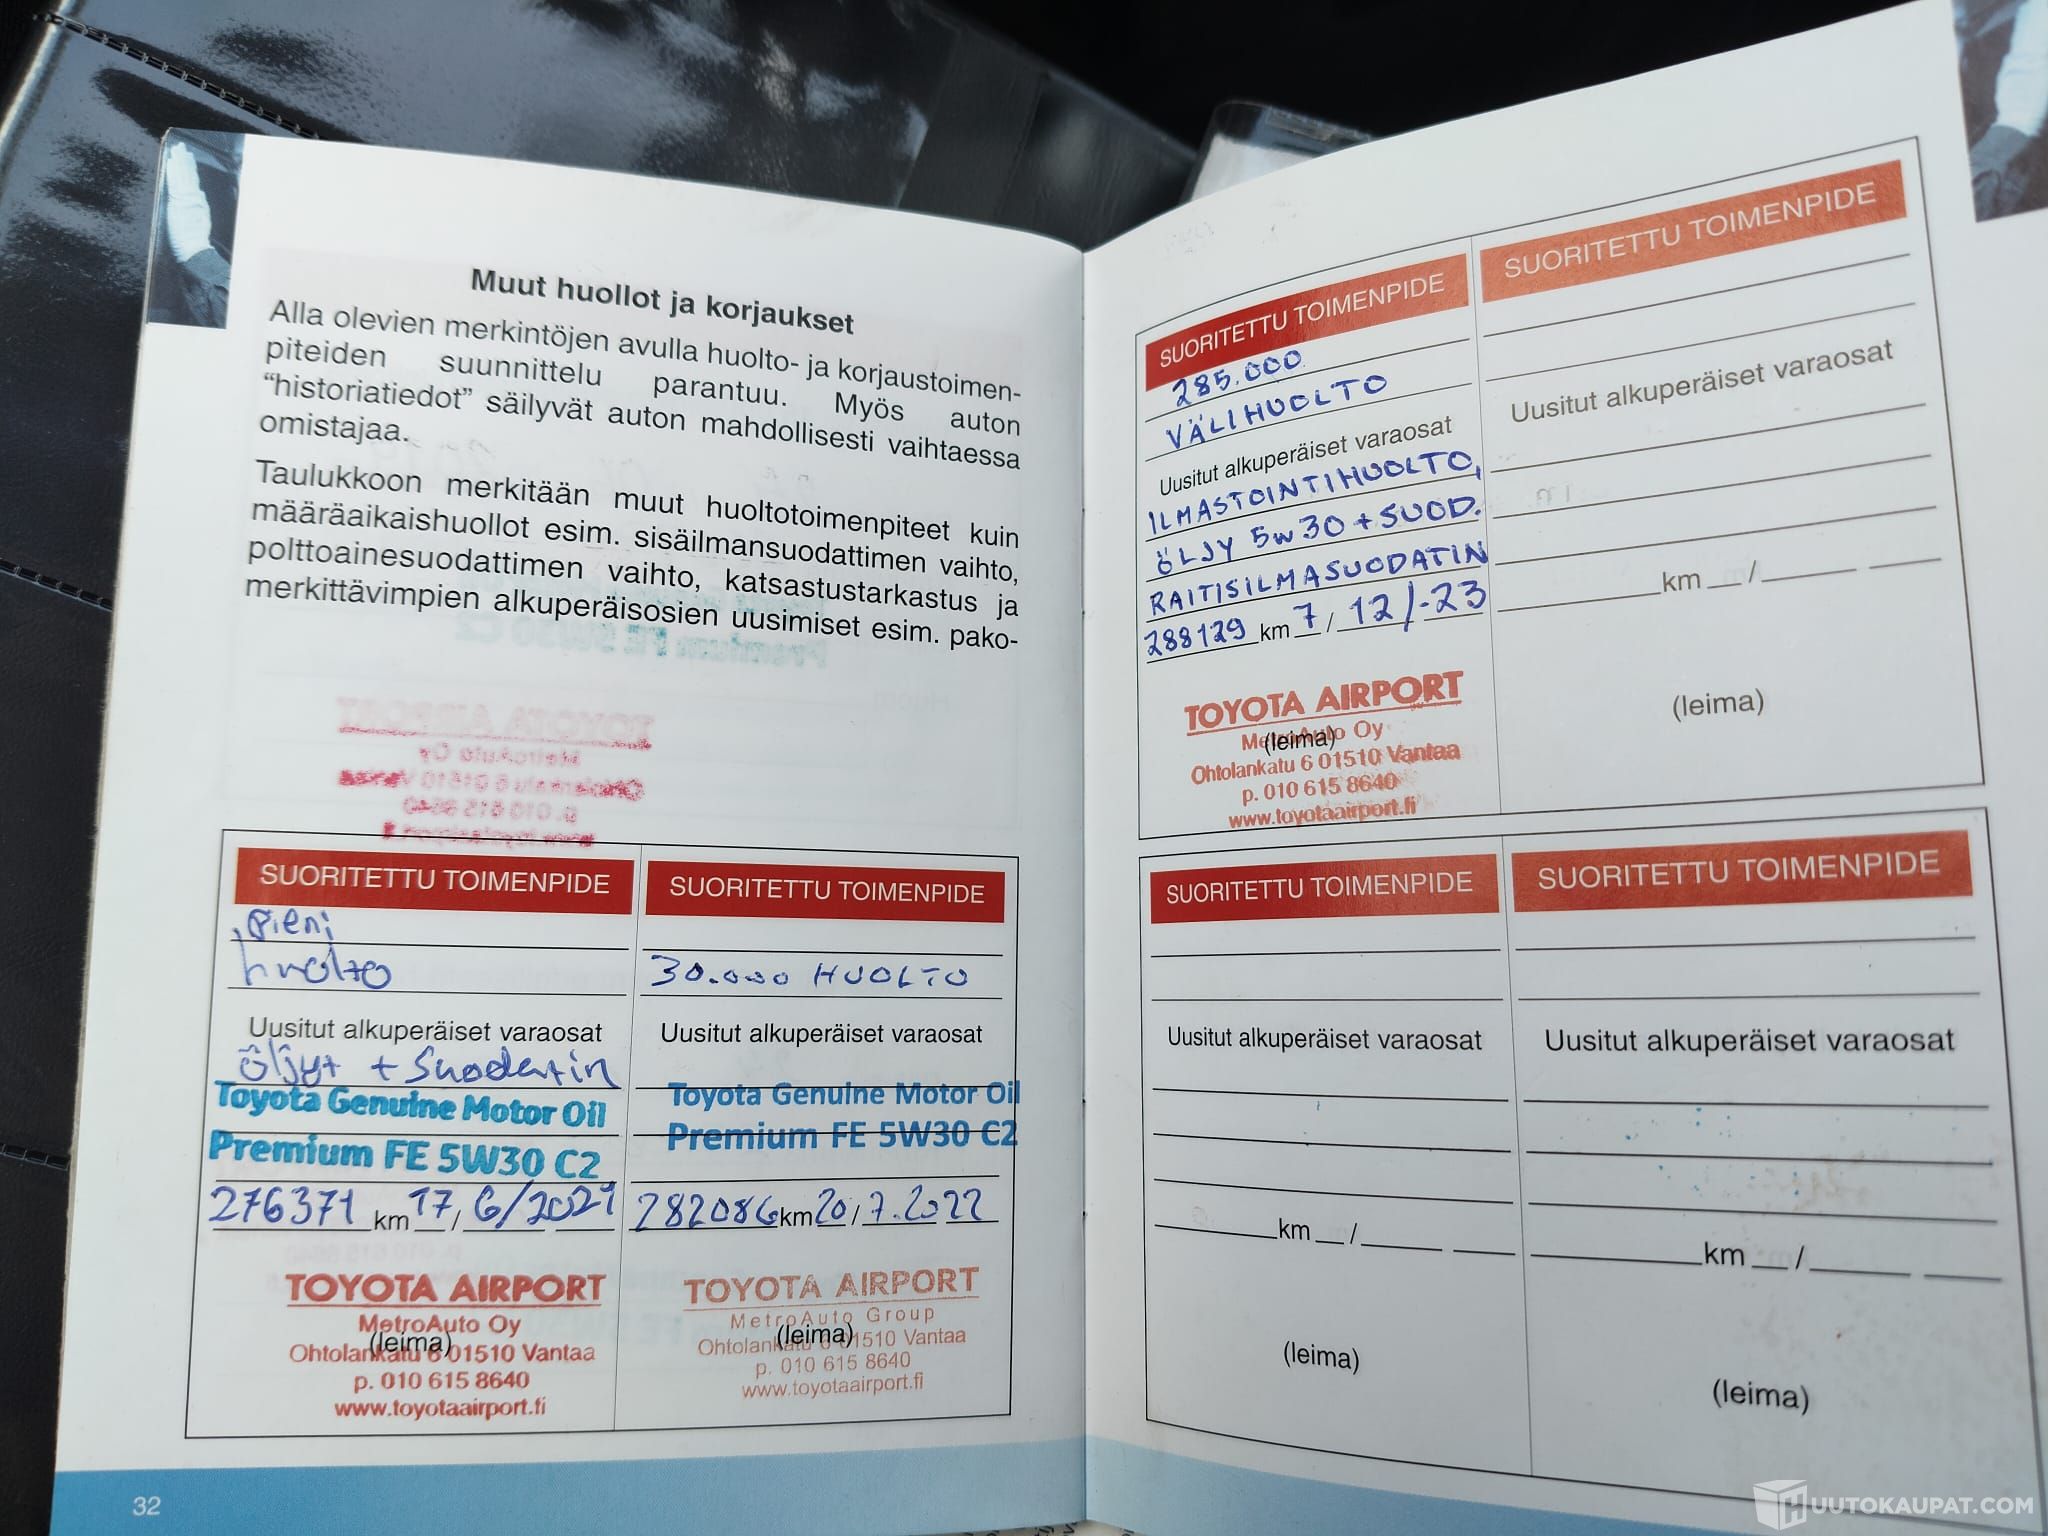 Muut huollot ja korjaukset
Alla olevien merkintöjen avulla huolto- ja korjaustoimen-
piteiden suunnittelu parantuu. Myös auton
“historiatiedot” säilyvät auton mahdollisesti vaihtaessa
omistajaa.
Taulukkoon merkitään muut huoltotoimenpiteet kuin
määräaikaishuollot esim. sisäilmansuodattimen vaihto,
polttoainesuodattimen vaihto, katsastustarkastus ja
merkittävimpien alkuperäisosien uusimiset esim. pako-
SUORITETTU TOIMENPIDE
pieni
huolto
Uusitut alkuperäiset varaosat
öljyt + Suodatin
Toyota Genuine Motor Oil
Premium FE 5W30 C2
276371 km 17/6/2021
TOYOTA AIRPORT
MetroAuto Oy
(leima)
Ohtolankatu 6 01510 Vantaa
p. 010 615 8640
www.toyotaairport.fi
SUORITETTU TOIMENPIDE
30.000 HUOLTO
Uusitut alkuperäiset varaosat
Toyota Genuine Motor Oil
Premium FE 5W30 C2
282086 km 20/7.2022
TOYOTA AIRPORT
MetroAuto Group
(leima)
Ohtolankatu 6 01510 Vantaa
p. 010 615 8640
www.toyotaairport.fi
32
SUORITETTU TOIMENPIDE
285.000
VÄLIHUOLTO
Uusitut alkuperäiset varaosat
ILMASTOINTIHUOLTO,
ÖLJY 5W30 + SUOD.
RAITISILMASUODATIN
288129 km 7/12/-23
TOYOTA AIRPORT
MetroAuto Oy
(leima)
Ohtolankatu 6 01510 Vantaa
p. 010 615 8640
www.toyotaairport.fi
SUORITETTU TOIMENPIDE
Uusitut alkuperäiset varaosat
km /
(leima)
SUORITETTU TOIMENPIDE
Uusitut alkuperäiset varaosat
km /
(leima)
SUORITETTU TOIMENPIDE
Uusitut alkuperäiset varaosat
km /
(leima)
HUUTOKAUPAT.COM